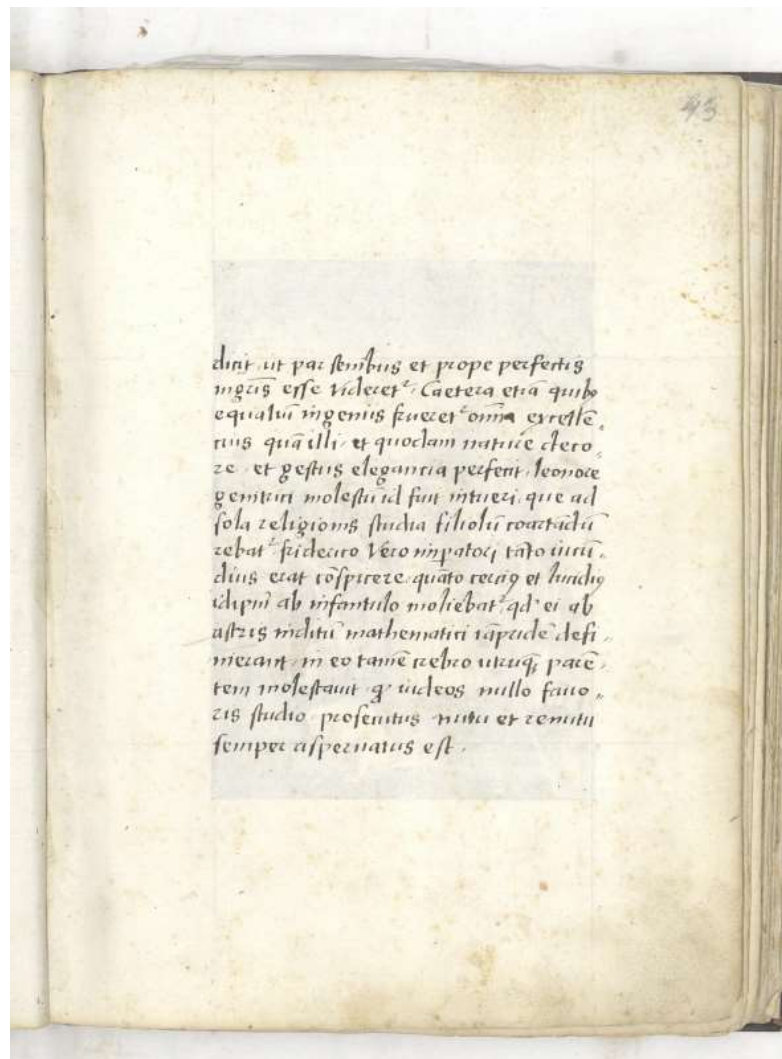 43
dicit, ut par senibus et prope perfectis
ingeīs esse videret᷑. Caetera etiā quibꝫ
equaliū ingenius frueret᷑ om̄ia excellē„
cius quā illi, et quodam nature deco„
re, et gestus elegancia perfecit, leonore
genitrici molestū id fuit intueri, que ad
sola religionis studia filiolū coartādū
rebat᷑. friderico Vero imp̄atori tāto iucū„
dius erat cōspicere, quāto cerciꝰ et lucidiꝰ
idip̄m ab infantulo moliebat᷑, qd' ei ab
astris inditū mathematici iāpridē defi„
nierant, in eo tamē crebro utrūqꝫ parē„
tem molestauit, iudeos nullo fauo„
ris studio prosecutus nutu et renutu
semper aspernatus est.